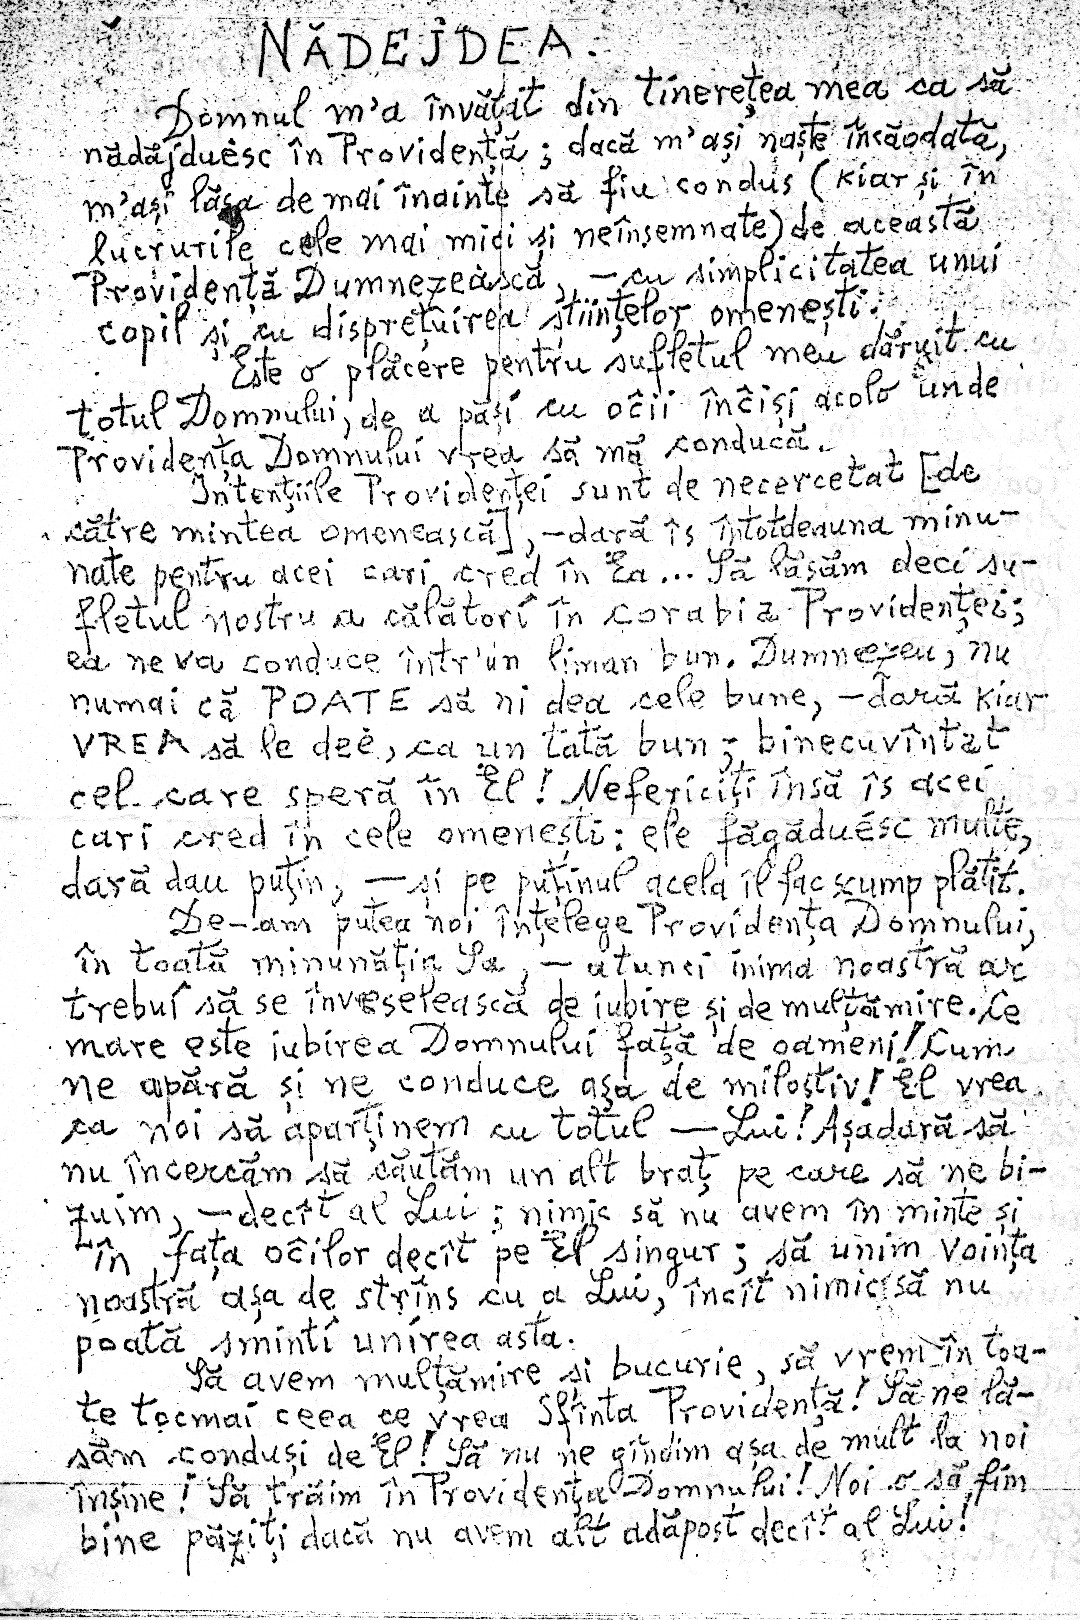 NĂDEJDEA.
Domnul m'a învățat din tinerețea mea ca să
nădăjduèsc în Providență; dacă m'ași naște însăodată,
m'ași lăsa de mai înainte să fiu condus (kiar și în
lucrurile cele mai mici și neînsemnate) de această
Providență Dumnezeàscă, – cu simplicitatea unui
copil și cu disprețuirea științelor omenești.
Este o plăcere pentru sufletul meu dăruit cu
totul Domnului, de a păși cu ocîi încîși acolo unde
Providența Domnului vrea să mă conducă.
Intențiile Providenței sunt de necercetat [de
către mintea omenească], – dară îs întotdeauna minu-
nate pentru acei cari cred în Ea... Să lăsăm deci su-
fletul nostru a călătorî în corabia Providenței;
ea ne va conduce într'un liman bun. Dumnezeu, nu
numai că POATE să ni dea cele bune, – dară kiar
VREA să le deè, ca un tată bun; binecuvîntat
cel care speră în El! Nefericiți însă îs acei
cari cred în cele omenești: ele făgăduésc multe,
dară dau puțin, – și pe puținul acela îl fac scump plătit.
De-am putea noi înțelege Providența Domnului,
în toată minunăția Sa, – atunci inima noastră ar
trebuî să se înveselească de iubire și de mulțămire. Ce
mare este iubirea Domnului față de oameni! Cum
ne apără și ne conduce așa de milostiv! El vrea
ca noi să aparținem cu totul – Lui! Așadară să
nu încercăm să căutăm un alt braț pe care să ne bi-
zuim, – decît al Lui; nimic să nu avem în minte și
în fața ocîilor decît pe El singur; să unim voința
noastră așa de strîns cu a Lui, încît nimic să nu
poată smintî unirea asta.
Să avem mulțămire și bucurie, să vrem în toa-
te tocmai ceea ce vrea Sfînta Providență! Să ne lă-
săm conduși de El! Să nu ne gîndim așa de mult la noi
înșine! Să trăim în Providența Domnului! Noi o să fim
bine păziți dacă nu avem alt adăpost decît al Lui!